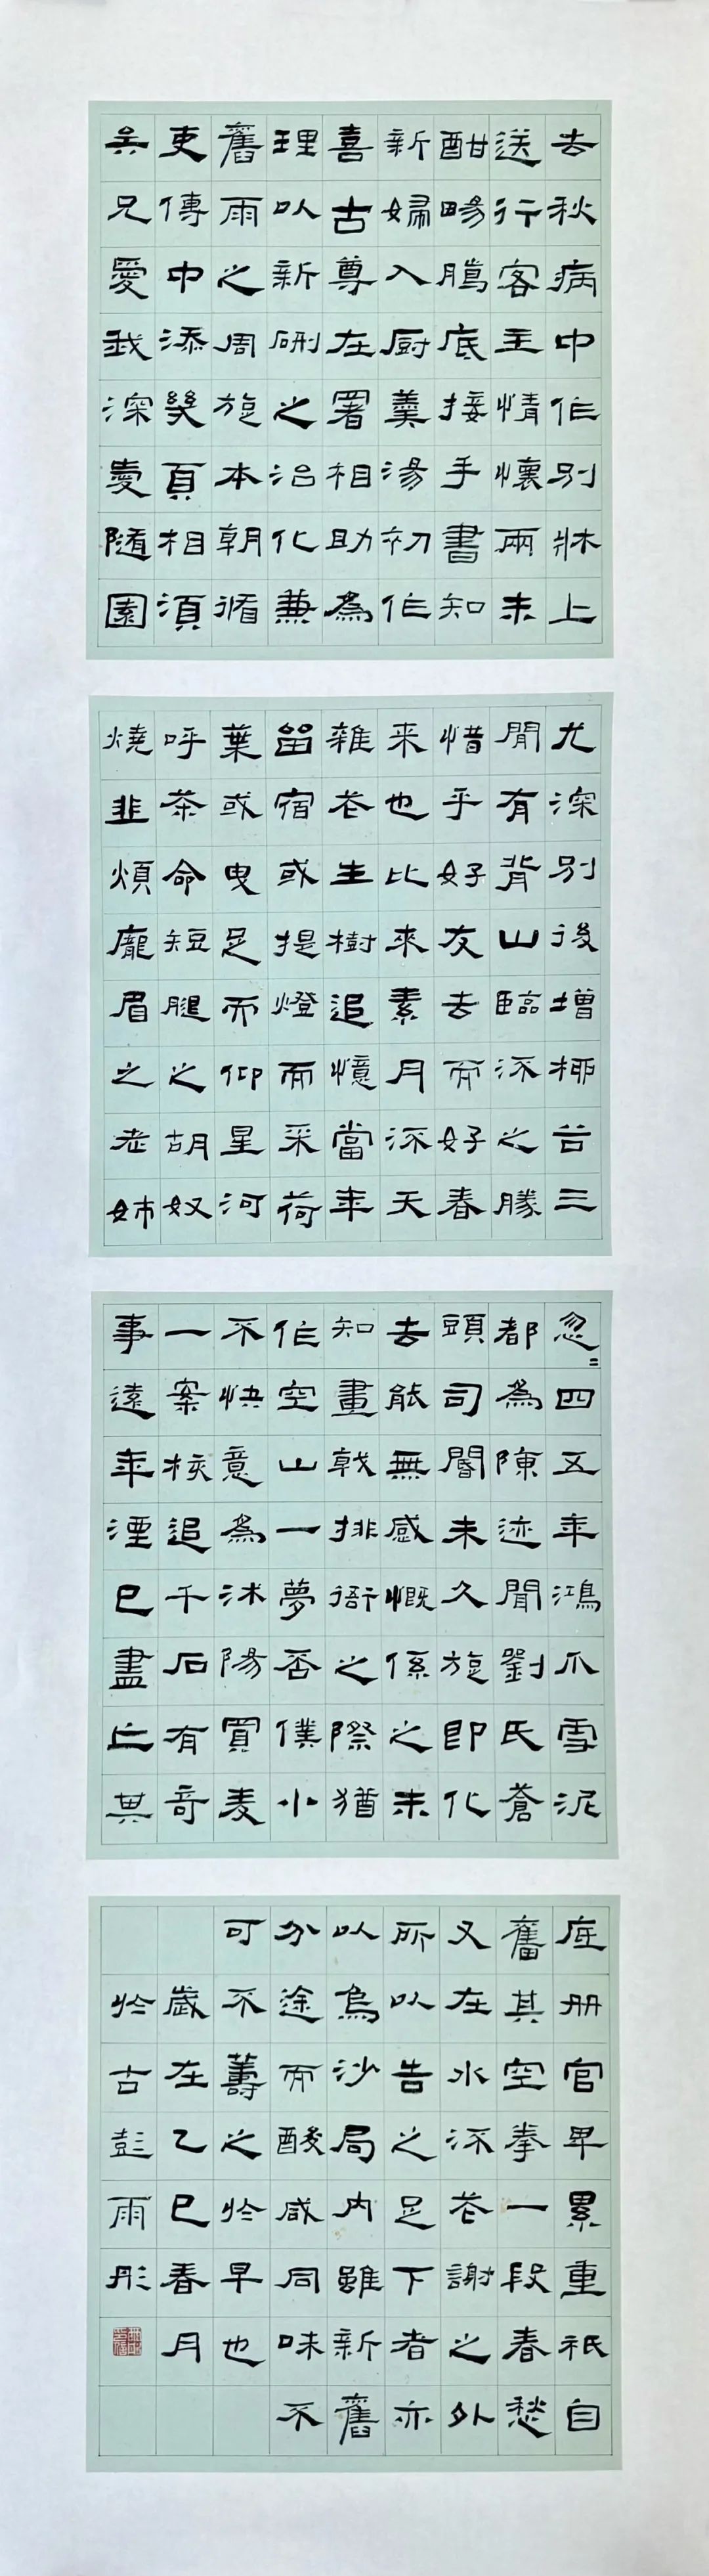 去秋病中作別牀上
送行客主情懷兩未
酣暢鵩底接手書知
新婦入厨羹湯初作
喜古尊在署相助為
理以新硎之治化兼
舊雨之周旋本朝循
吏傳中添幾頁相須
吳兄愛我深愛隨園
尤深別後增栁谷三
閒有背山臨流之勝
惜乎好友去而好春
来也比來素月流天
雜花生樹追憶當年
留宿或提燈而采荷
葉或曳足而仰星河
呼茶命短腿之胡奴
燒韭煩龐眉之老姉
忽〻四五年鴻爪雪泥
都為陳迹聞劉氏蒼
頭司閽未久旋即化
去能無感慨係之未
知畫戟排衙之際猶
作空山一夢否僕小
不快意為沭陽買麦
一案核追千石有奇
事遠年湮巳盡亡其
底冊官卑累重祇自
舊其空拳一段春愁
又在水流花謝之外
所以告之足下者亦
以烏沙局内雖新舊
分途而酸咸同味不
可不籌之於早也
歲在乙巳春月
於古彭雨彤